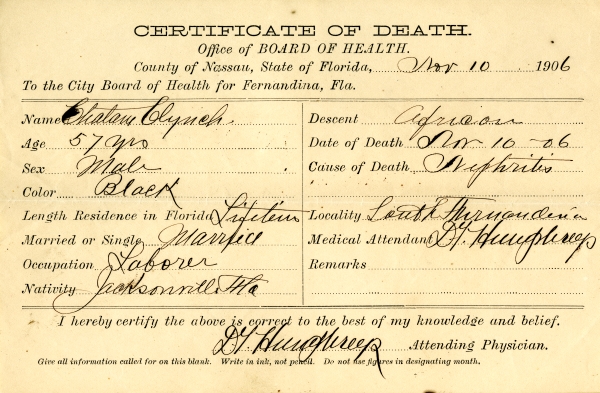 CERTIFICATE OF DEATH.
Office of BOARD OF HEALTH.
County of Nassau, State of Florida, Nov 10 1906
To the City Board of Health for Fernandina, Fla.
Name Chatam Clynch.
Age 57 yrs
Sex Male
Color Black
Length Residence in Florida Lifetime
Married or Single Married
Occupation Laborer
Nativity Jacksonville Fla
Descent African
Date of Death Nov-10-06
Cause of Death Nephritis
Locality South Fernandina
Medical Attendant DG Humphreys
Remarks
I hereby certify the above is correct to the best of my knowledge and belief.
DG Humphreys Attending Physician.
Give all information called for on this blank. Write in ink, not pencil. Do not use figures in designating month.